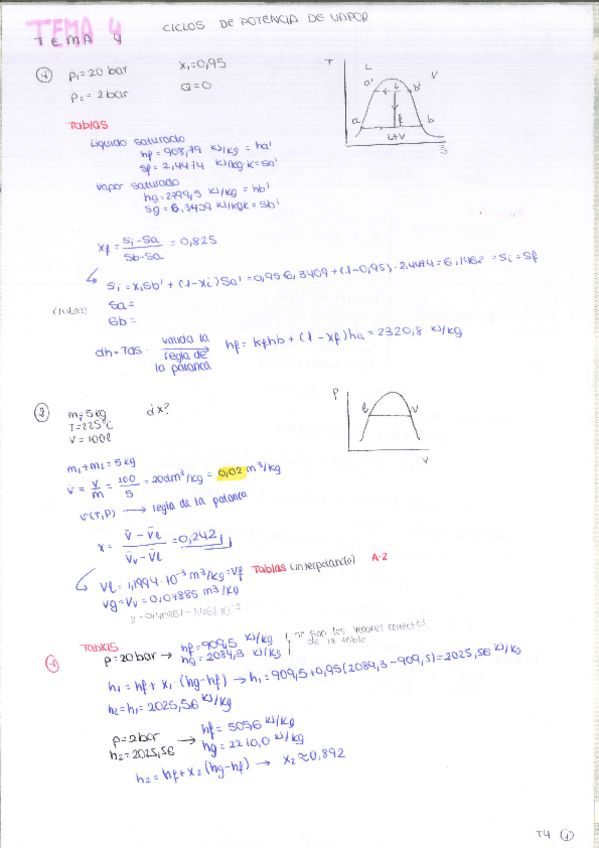 TEMA 4
TEMA 4
CICLOS DE POTENCIA DE VAPOR
1
P1=20 bar x1=0,95
P2=2bar Q=0
Tablas
Líquido saturado
hf=908,79 kJ/kg=ha'
sf=2,4474 kJ/kg·K=sa'
vapor saturado
hg=2799,5 kJ/kg=hb'
sg=6,3409 kJ/kgK=sb'
T
L
V
a'
i
b'
a
f
b
L+V
S
xf = (si-sa)/(sb-sa) = 0,825
si=xisb'+(1-xi)sa'=0,95·6,3409+(1-0,95)·2,4474=6,1462=si=sf
(tablas)
sa=
sb=
dh=Tds · valida la regla de la palanca hf=xfhb+(1-xf)ha=2320,8 kJ/kg
2
m=5kg ¿x?
T=225ºC
V=100l
P
l
v
V
m1+m2=5kg
v̄ = V/m = 100/5 = 20dm³/kg = 0,02 m³/kg
v(T,P) → regla de la palanca
x = (v̄-v̄l)/(v̄v-v̄l) = 0,242
vl=1,1994·10⁻³ m³/kg=vf Tablas (interpolando) A-2
vg=vv=0,07885 m³/kg
1
Tablas
P=20bar → hf=909,5 kJ/kg
hg=2084,3 kJ/kg
no son los valores
de la tabla
h1=hf+x1·(hg-hf) → h1=909,5+0,95(2084,3-909,5)=2025,56 kJ/kg
h2=h1=2025,56 kJ/kg
P=2bar
h2=2025,56 → hf=505,6 kJ/kg
hg=2210,0 kJ/kg
h2=hf+x2(hg-hf) → x2≈0,892
T4 1